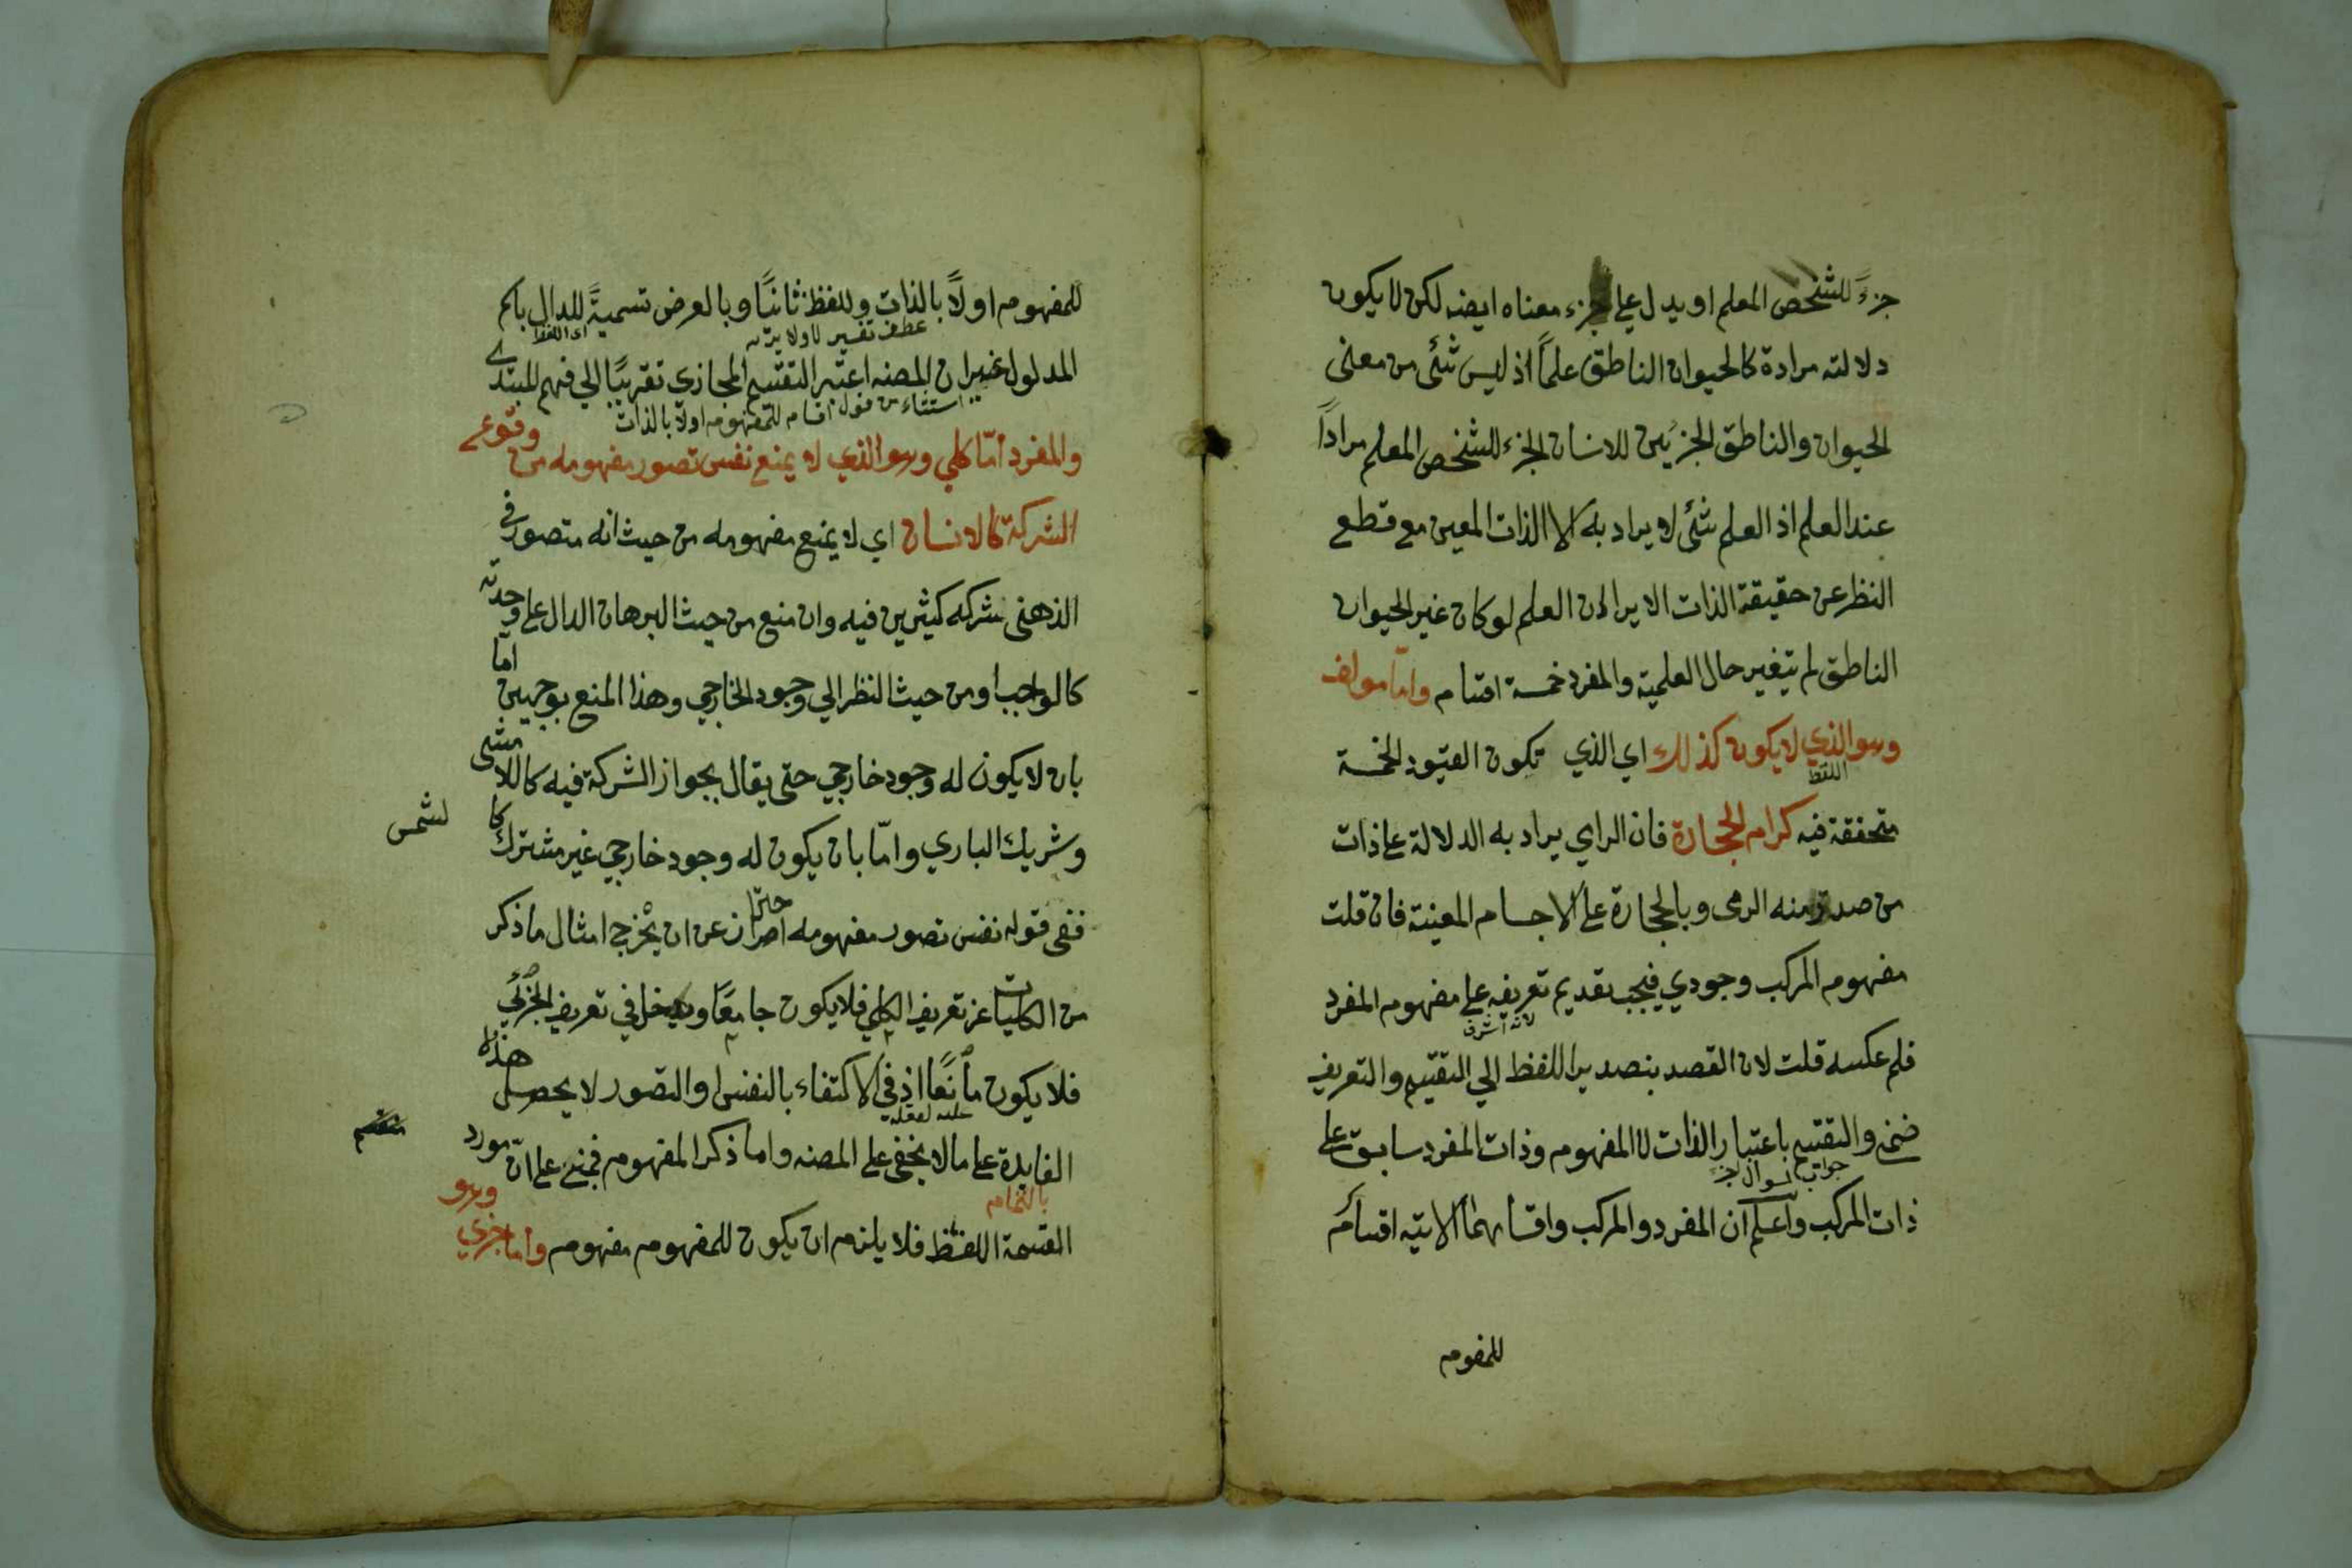 جزءً للشخص المعلم او يدل على جزء معناه ايضه لكن لا يكون
دلالته مرادة كالحيوان الناطق علمًا اذ ليس شئ من معنى
الحيوان والناطق الجزئين للانسان الجزء للشخص المعلم مرادًا
عند العلم اذ العلم شئ لا يراد به الا الذات المعين مع قطع
النظر عن حقيقة الذات الا يرا ان العلم لو كان غير الحيوان
الناطق لم يتغير حال العلمية والمفرد خمسة اقسام واما مولف
وهو الذي لا يكون كذلك اي الذي تكون القيود الخمسة
اللفظ
متحققة فيه كرام الحجارة فان الراي يراد به الدلالة على ذات
من صدر منه الرمى وبالحجارة على الاجسام المعينة فان قلت
مفهوم المركب وجودي فيجب تقديم تعريفه على مفهوم المفرد
لانه اشرف
فلم عكسه قلت لان القصد بتصدير اللفظ الي التقسيم والتعريف
ضمنى والتقسيم باعتبار الذات لا المفهوم وذات المفرد سابق على
جواب لسوال
ذات المركب واعلم ان المفرد والمركب واقسامهما الاتيه اقسام
للمفوم
للمفهوم اولًا بالذات وللفظ ثانيًا وبالعرض تسميةً للدال باسم
عطف تفسير لاولا اى اللفظ
المدلول غير ان المصنه اعتبر التقسيم المجازي تقريبًا الي فهم المبتدى
استثناء من قول اقسام للمفهوم اولا بالذات
والمفرد امّا كلي وهو الذي لا يمنع نفس تصور مفهومه من وقوع
الشركة كالانسان اي لا يمنع مفهومه من حيث انه متصور في
الذهنى شركه كثيرين فيه وان منع من حيث البرهان الدال على وحدته
كالواجب او من حيث النظر الي وجود الخارجي وهذا المنع بوجهين اما
بان لا يكون له وجود خارجي حتى يقال بجواز الشركة فيه كاللاشى
وشريك الباري وامّا بان يكون له وجود خارجي غير مشترك كا
لشمس
ففى قوله نفس تصور مفهومه احتراز عن ان يخرج امثال ما ذكر
من الكليات عن تعريف الكلي فلا يكون جامعًا ويدخل في تعريف الجزئي
فلا يكون مانعًا اذ في الاكتفاء بالنفس او التصور لا يحصل هذا
الفايدة على ما لا يخفى على المصنه واما ذكر المفهوم فمبنى على ان مورد
بالتمام
القسمة اللفظ فلا يلزم ان يكون للمفهوم مفهوم واما جزي وهو